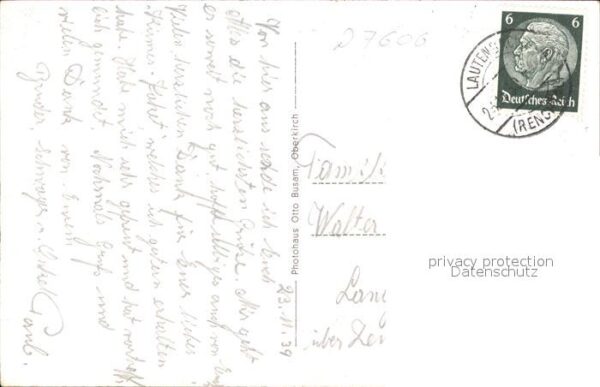 D7606
6 6
Deutsches Reich
LAUTEN
(REN
Photohaus Otto Busam, Oberkirch
23.11.39
Von hier aus sende ich Euch
Allen die herzlichsten Grüße. Mir geht
es soweit noch gut, hoffe selbiges auch von Euch
Vielen herzlichen Dank für Euer liebes
welches ich gestern erhalten
habe. Habe mich sehr gefreut und hat
gemundet. Nochmals Gruß und
vielen Dank von Eurem
Bruder, Schwager u. Onkel
Paul.
Famili
Walter
Lan
über
privacy protection
Datenschutz